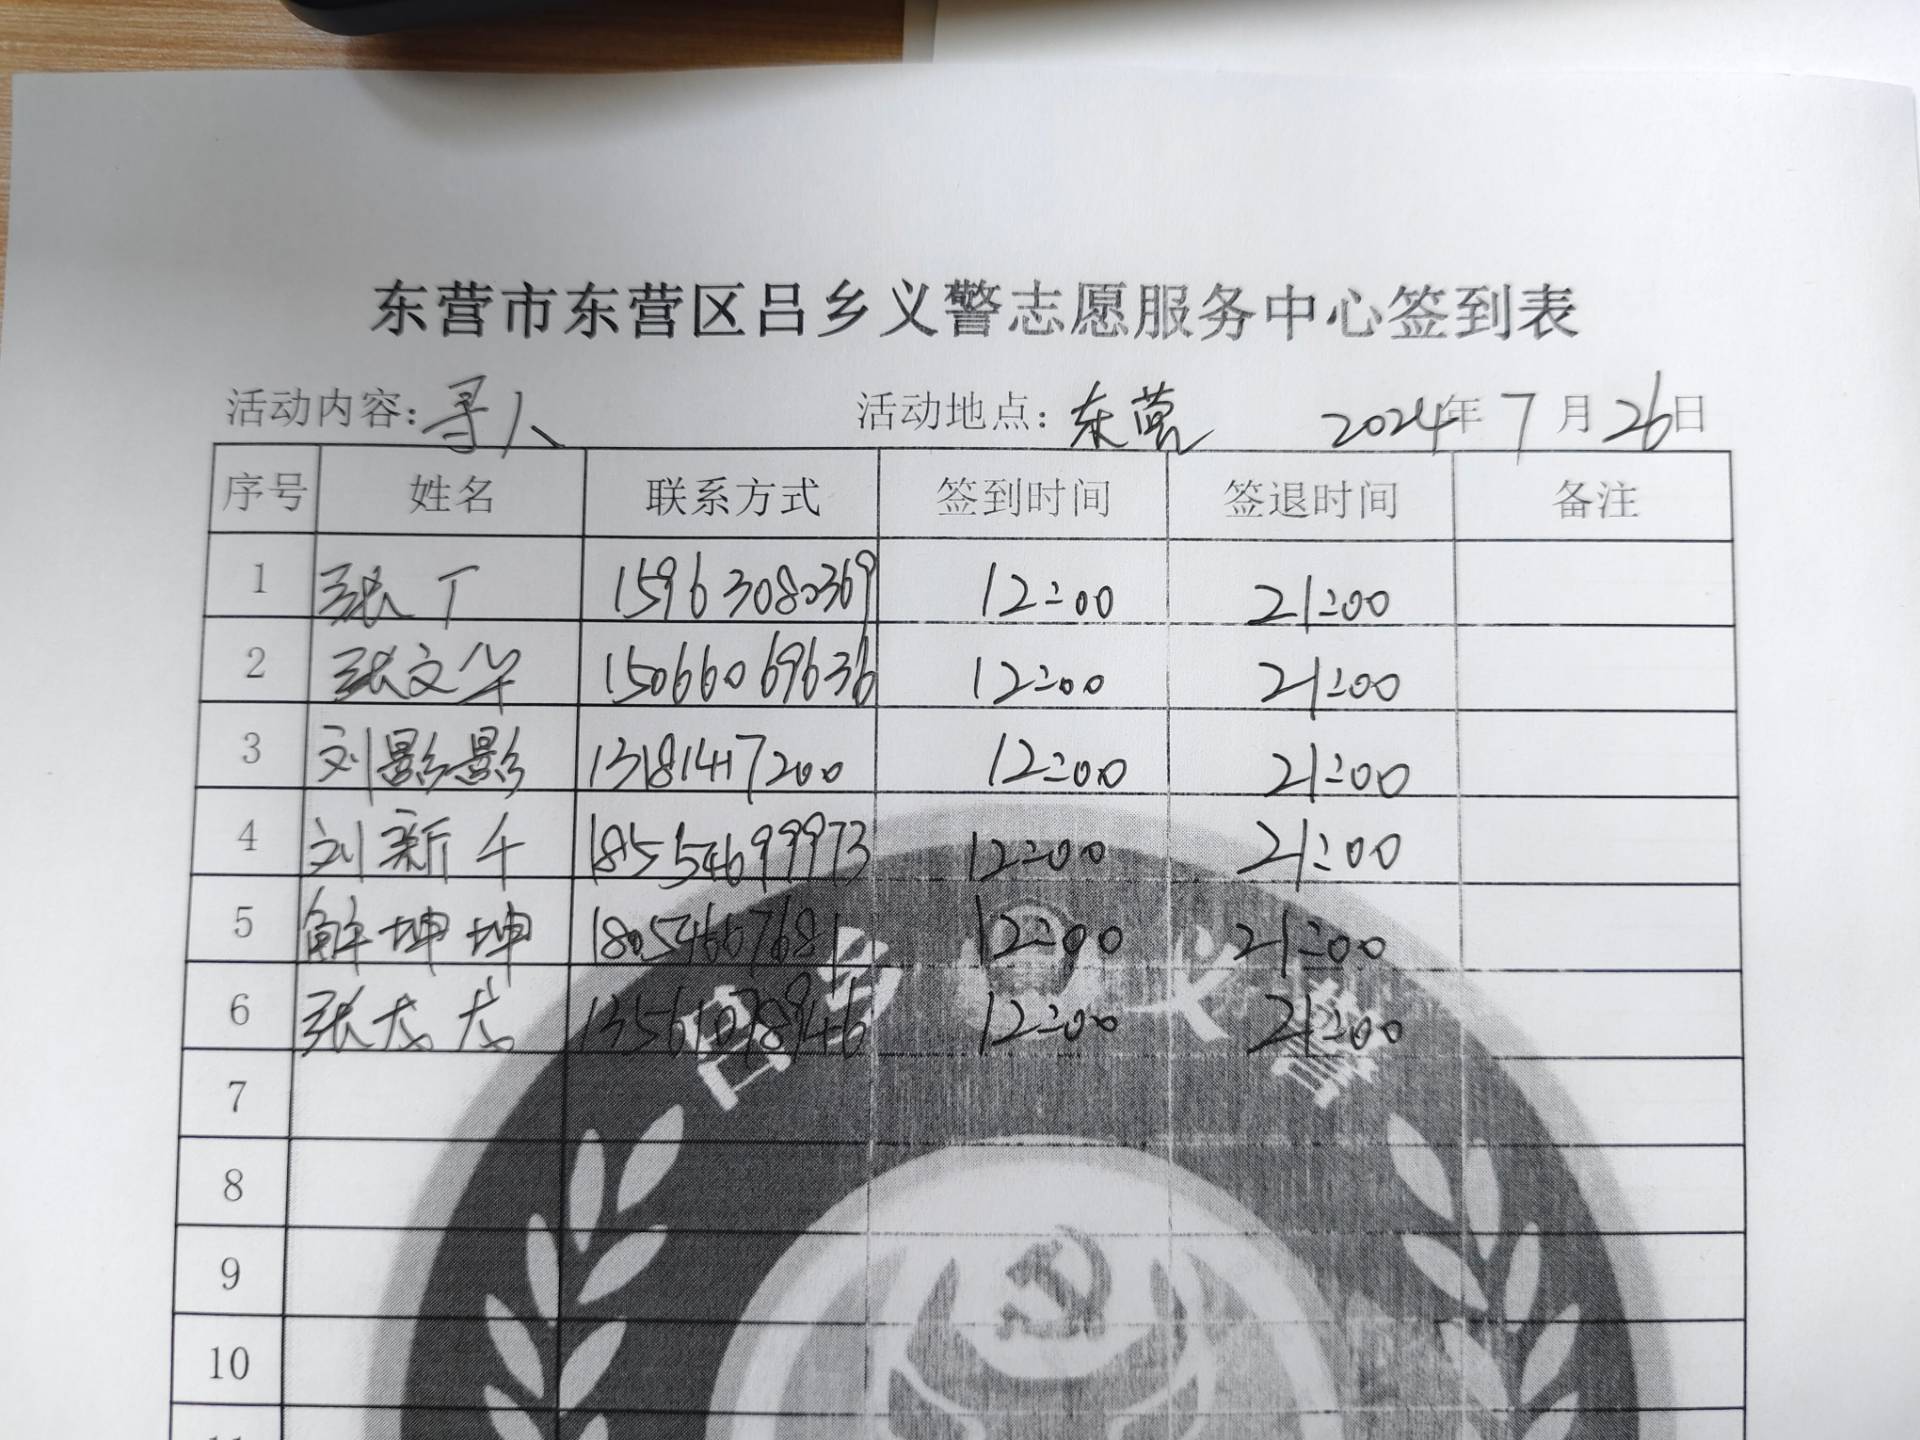 东营市东营区吕乡义警志愿服务中心签到表
活动内容：寻人 活动地点：东营 2024年7月26日
序号 姓名 联系方式 签到时间 签退时间 备注
1 张丁 15963080369 12:00 21:00
2 张文华 15066069636 12:00 21:00
3 刘影影 13181417200 12:00 21:00
4 刘新千 18554699973 12:00 21:00
5 解坤坤 18054607681 12:00 21:00
6 张 13561078946 12:00 21:00
吕乡义警
7
8
9
10
11